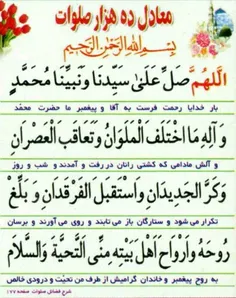 معادل ده هزار صلوات
بِسْمِ اللهِ الرَّحْمٰنِ الرَّحِيمِ
اَللّٰهُمَّ صَلِّ عَلَىٰ سَيِّدِنَا وَنَبِيِّنَا مُحَمَّدٍ
بار خدایا رحمت فرست به آقا و پیغمبر ما حضرت محمّد
وَ آلِهِ مَا اخْتَلَفَ الْمَلَوَانِ وَتَعَاقَبَ الْعَصْرَانِ
و آلش مادامی که کشتی رانان در رفت و آمدند و شب و روز
وَكَرَّ الْجَدِيدَانِ وَاسْتَقْبَلَ الْفَرْقَدَانِ وَ بَلِّغْ
تکرار می شود و ستارگان باز می تابند و روی می آورند و برسان
رُوحَهُ وَاَرْوَاحَ اَهْلِ بَيْتِهِ مِنِّى التَّحِيَّةَ وَالسَّلَامَ
به روح پیغمبر و خاندان گرامیش از طرف من تحیّت و درودی خالص
شرح فضائل صلوات صفحه ۱۷۷